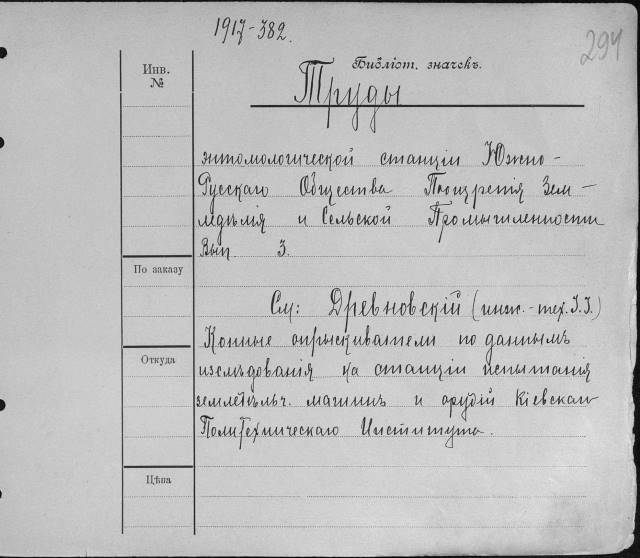 1917-382.
294
Инв.
№
Библіот. значекъ.
Труды
энтомологической станціи Южно-
Русскаго Общества Поощренія Зем-
ледѣлія и Сельской Промышленности
Вып 3.
По заказу
См: Древновскій (инж.-тех. І.І.)
Конные опрыскиватели по даннымъ
Откуда
изслѣдованія на станціи испытанія
земледѣльч. машинъ и орудій Кіевскаго
Политехническаго Института.
Цѣна